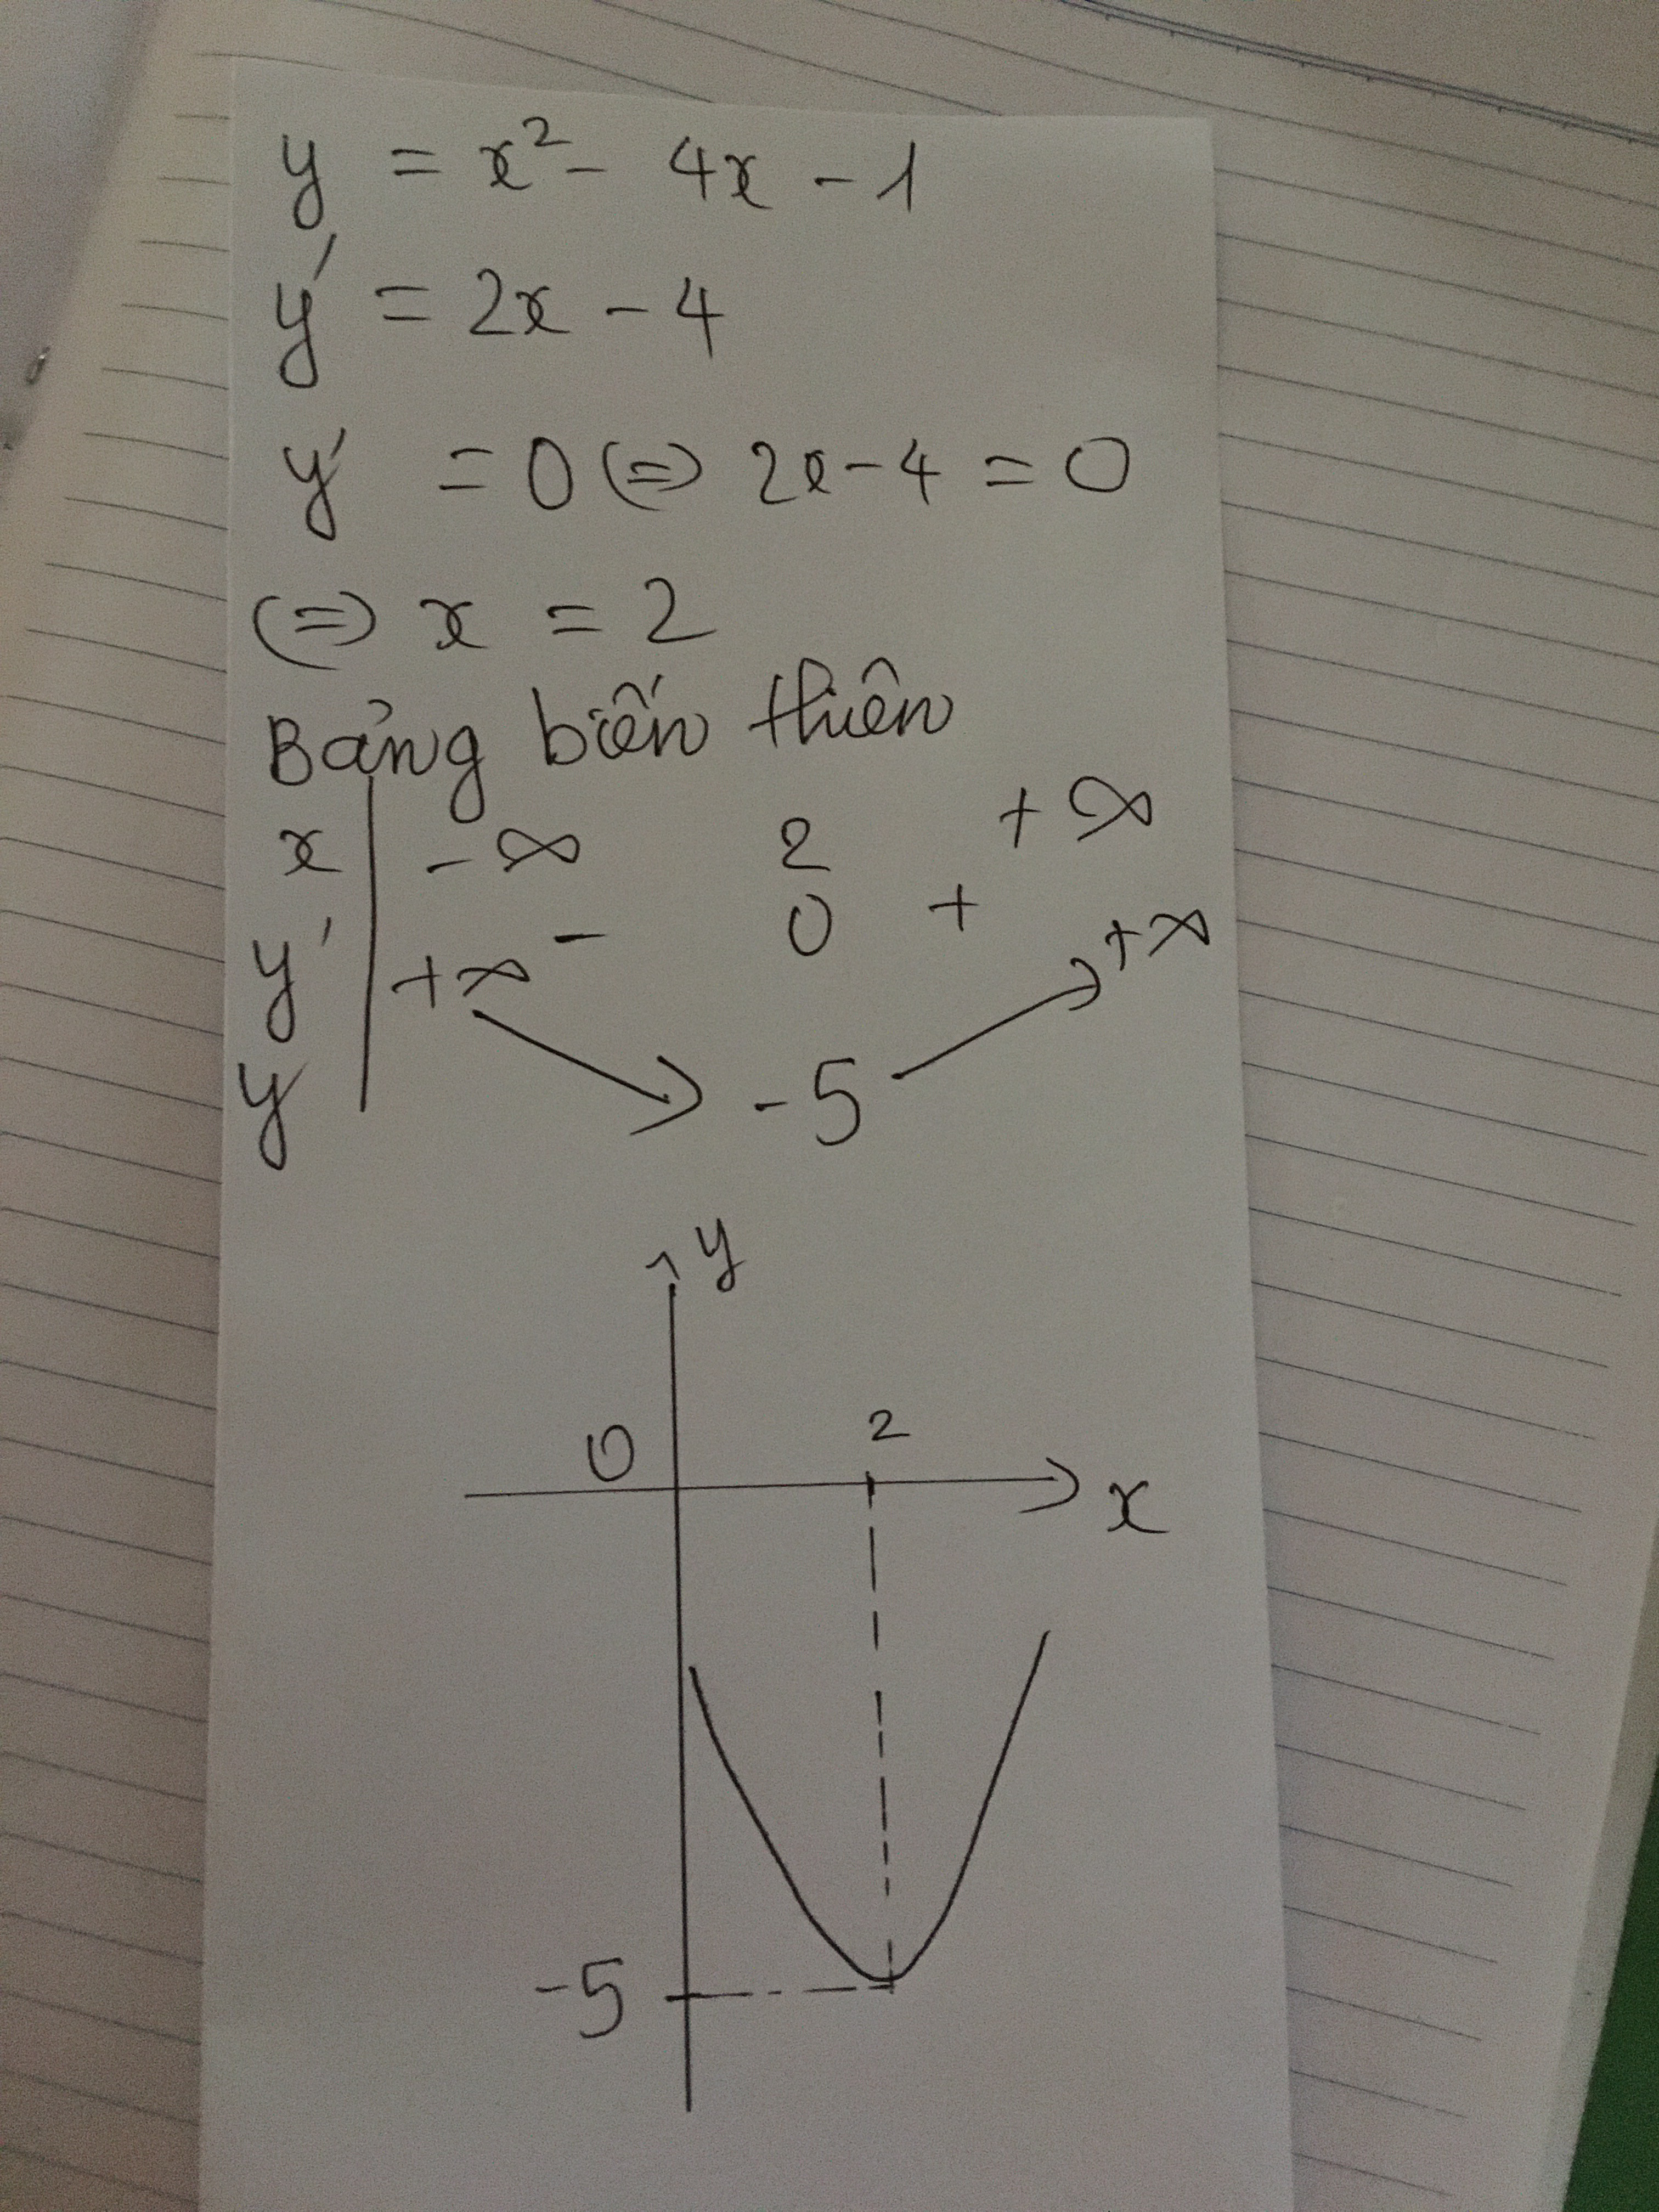 y = x² - 4x - 1
y' = 2x - 4
y' = 0 (=) 2x - 4 = 0
(=) x = 2
Bảng biến thiên
x | -∞ 2 +∞
y' | - 0 +
y | +∞ -5 +∞
y
0 2
x
-5